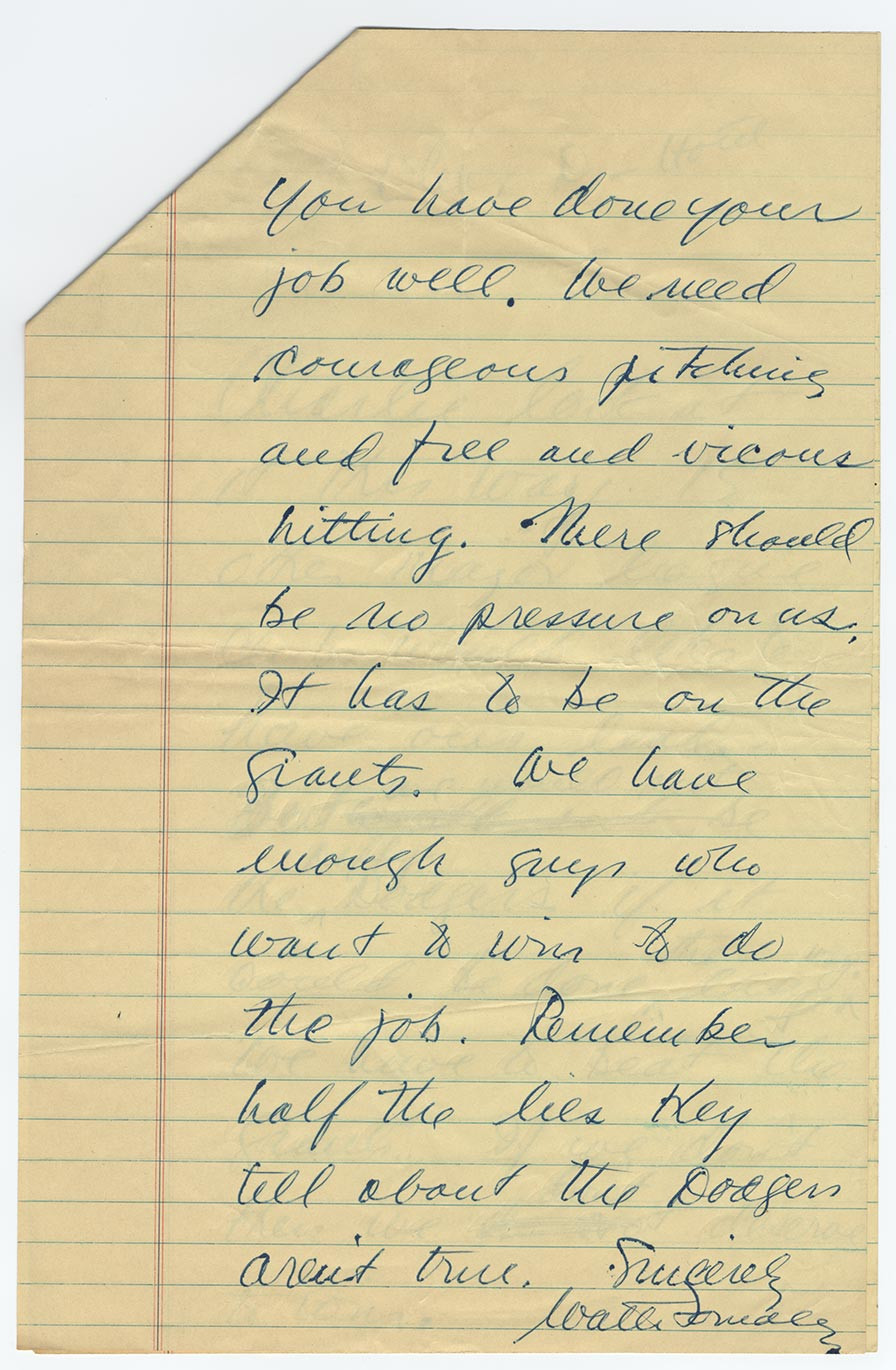 You have done your
job well. We need
courageous pitching
and free and vicous
hitting. There should
be no pressure on us.
It has to be on the
Giants. We have
enough guys who
want to win to do
the job. Remember
half the lies they
tell about the Dodgers
aren't true. Sincerely
Walter O'Malley